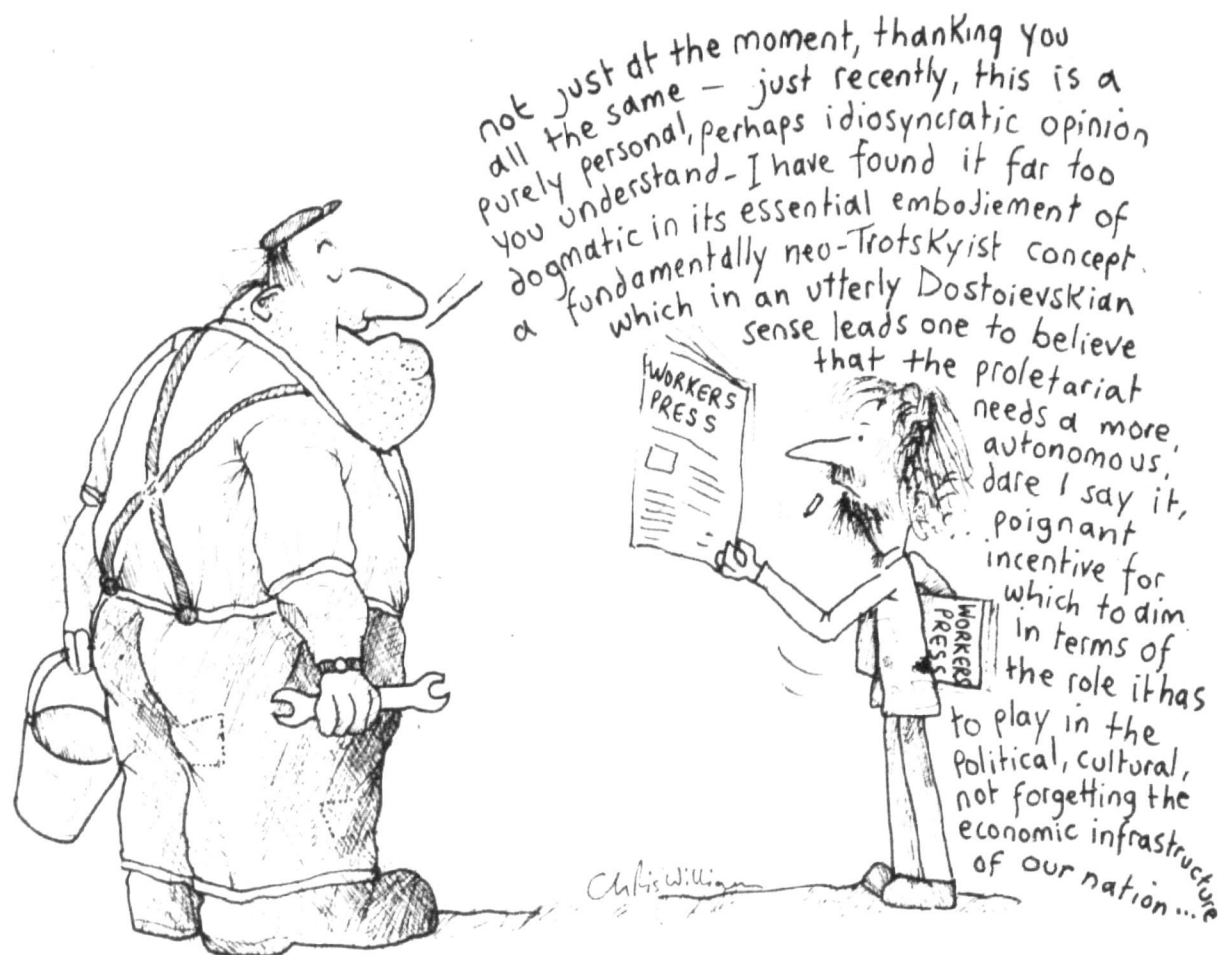 not just at the moment, thanking you
all the same – just recently, this is a
purely personal, perhaps idiosyncratic opinion
you understand – I have found it far too
dogmatic in its essential embodiement of
a fundamentally neo-Trotskyist concept.
which in an utterly Dostoievskian
sense leads one to believe
that the proletariat
needs a more,
autonomous,
dare I say it,
... poignant
incentive for
which to aim
in terms of
the role it has
to play in the
political, cultural,
not forgetting the
economic infrastructure
of our nation...
WORKERS
PRESS
WORKERS
PRESS